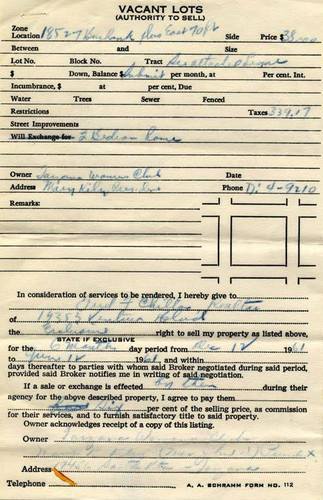 VACANT LOTS
(AUTHORITY TO SELL)
Zone
Location 18527 Burbank plus East 70 ft Side Price $38,000
Between and Size
Lot No. Block No. Tract See attached
$ Down, Balance $ Submit per month, at Per Cent. Int.
Incumbrance, $ at per cent, Due
Water Trees Sewer Fenced
Restrictions Taxes 339.17
Street Improvements
Will Exchange for
Owner Tarzana Womens Club Date
Address Mary Kily President Phone Di 4-9210
Remarks:
In consideration of services to be rendered, I hereby give to
Realtor
of 19353 Ventura Blvd
the Exclusive right to sell my property as listed above,
STATE IF EXCLUSIVE
for the 6 Months day period from Dec 12 1961
to June 12 and within
days thereafter to parties with whom said Broker negotiated during said period,
provided said Broker notifies me in writing of said negotiation.
If a sale or exchange is effected by them during their
agency for the above described property, I agree to pay them
per cent of the selling price, as commission
for their services, and to furnish satisfactory title to said property.
Owner acknowledges receipt of a copy of this listing.
Owner
Address
Telephone A. A. SCHRAMM FORM NO. 112